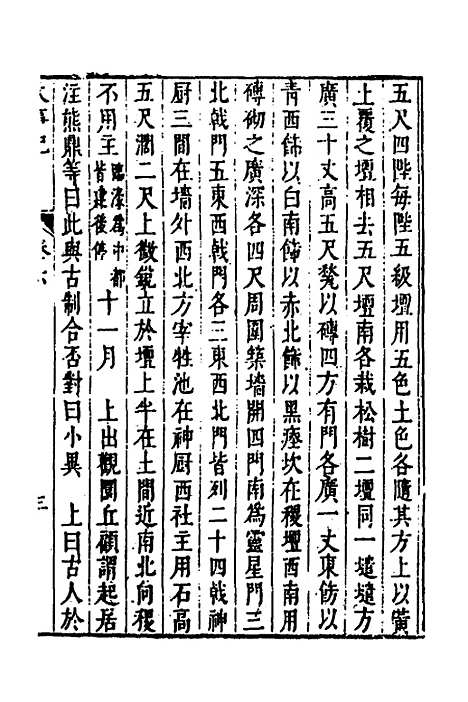 五尺四陛每陛五級壇用五色土色各隨其方上以黃
上覆之壇相去五尺壇南各栽松樹二壇同一壝壝方
廣三十丈高五尺甃以磚四方有門各廣一丈東飾以
青西飾以白南飾以赤北飾以黑瘞坎在稷壇西南用
磚砌之廣深各四尺周圍築墻開四門南為靈星門三
北戟門五東西戟門各三東西北門皆列二十四戟神
厨三間在墻外西北方宰牲池在神厨西社主用石高
五尺濶二尺上微銳立於壇上半在土間近南北向稷
不用主臨濠為中都皆建後停十一月 上出觀圜丘顧謂起居
注熊鼎等曰此與古制合否對曰小異 上曰古人於
三